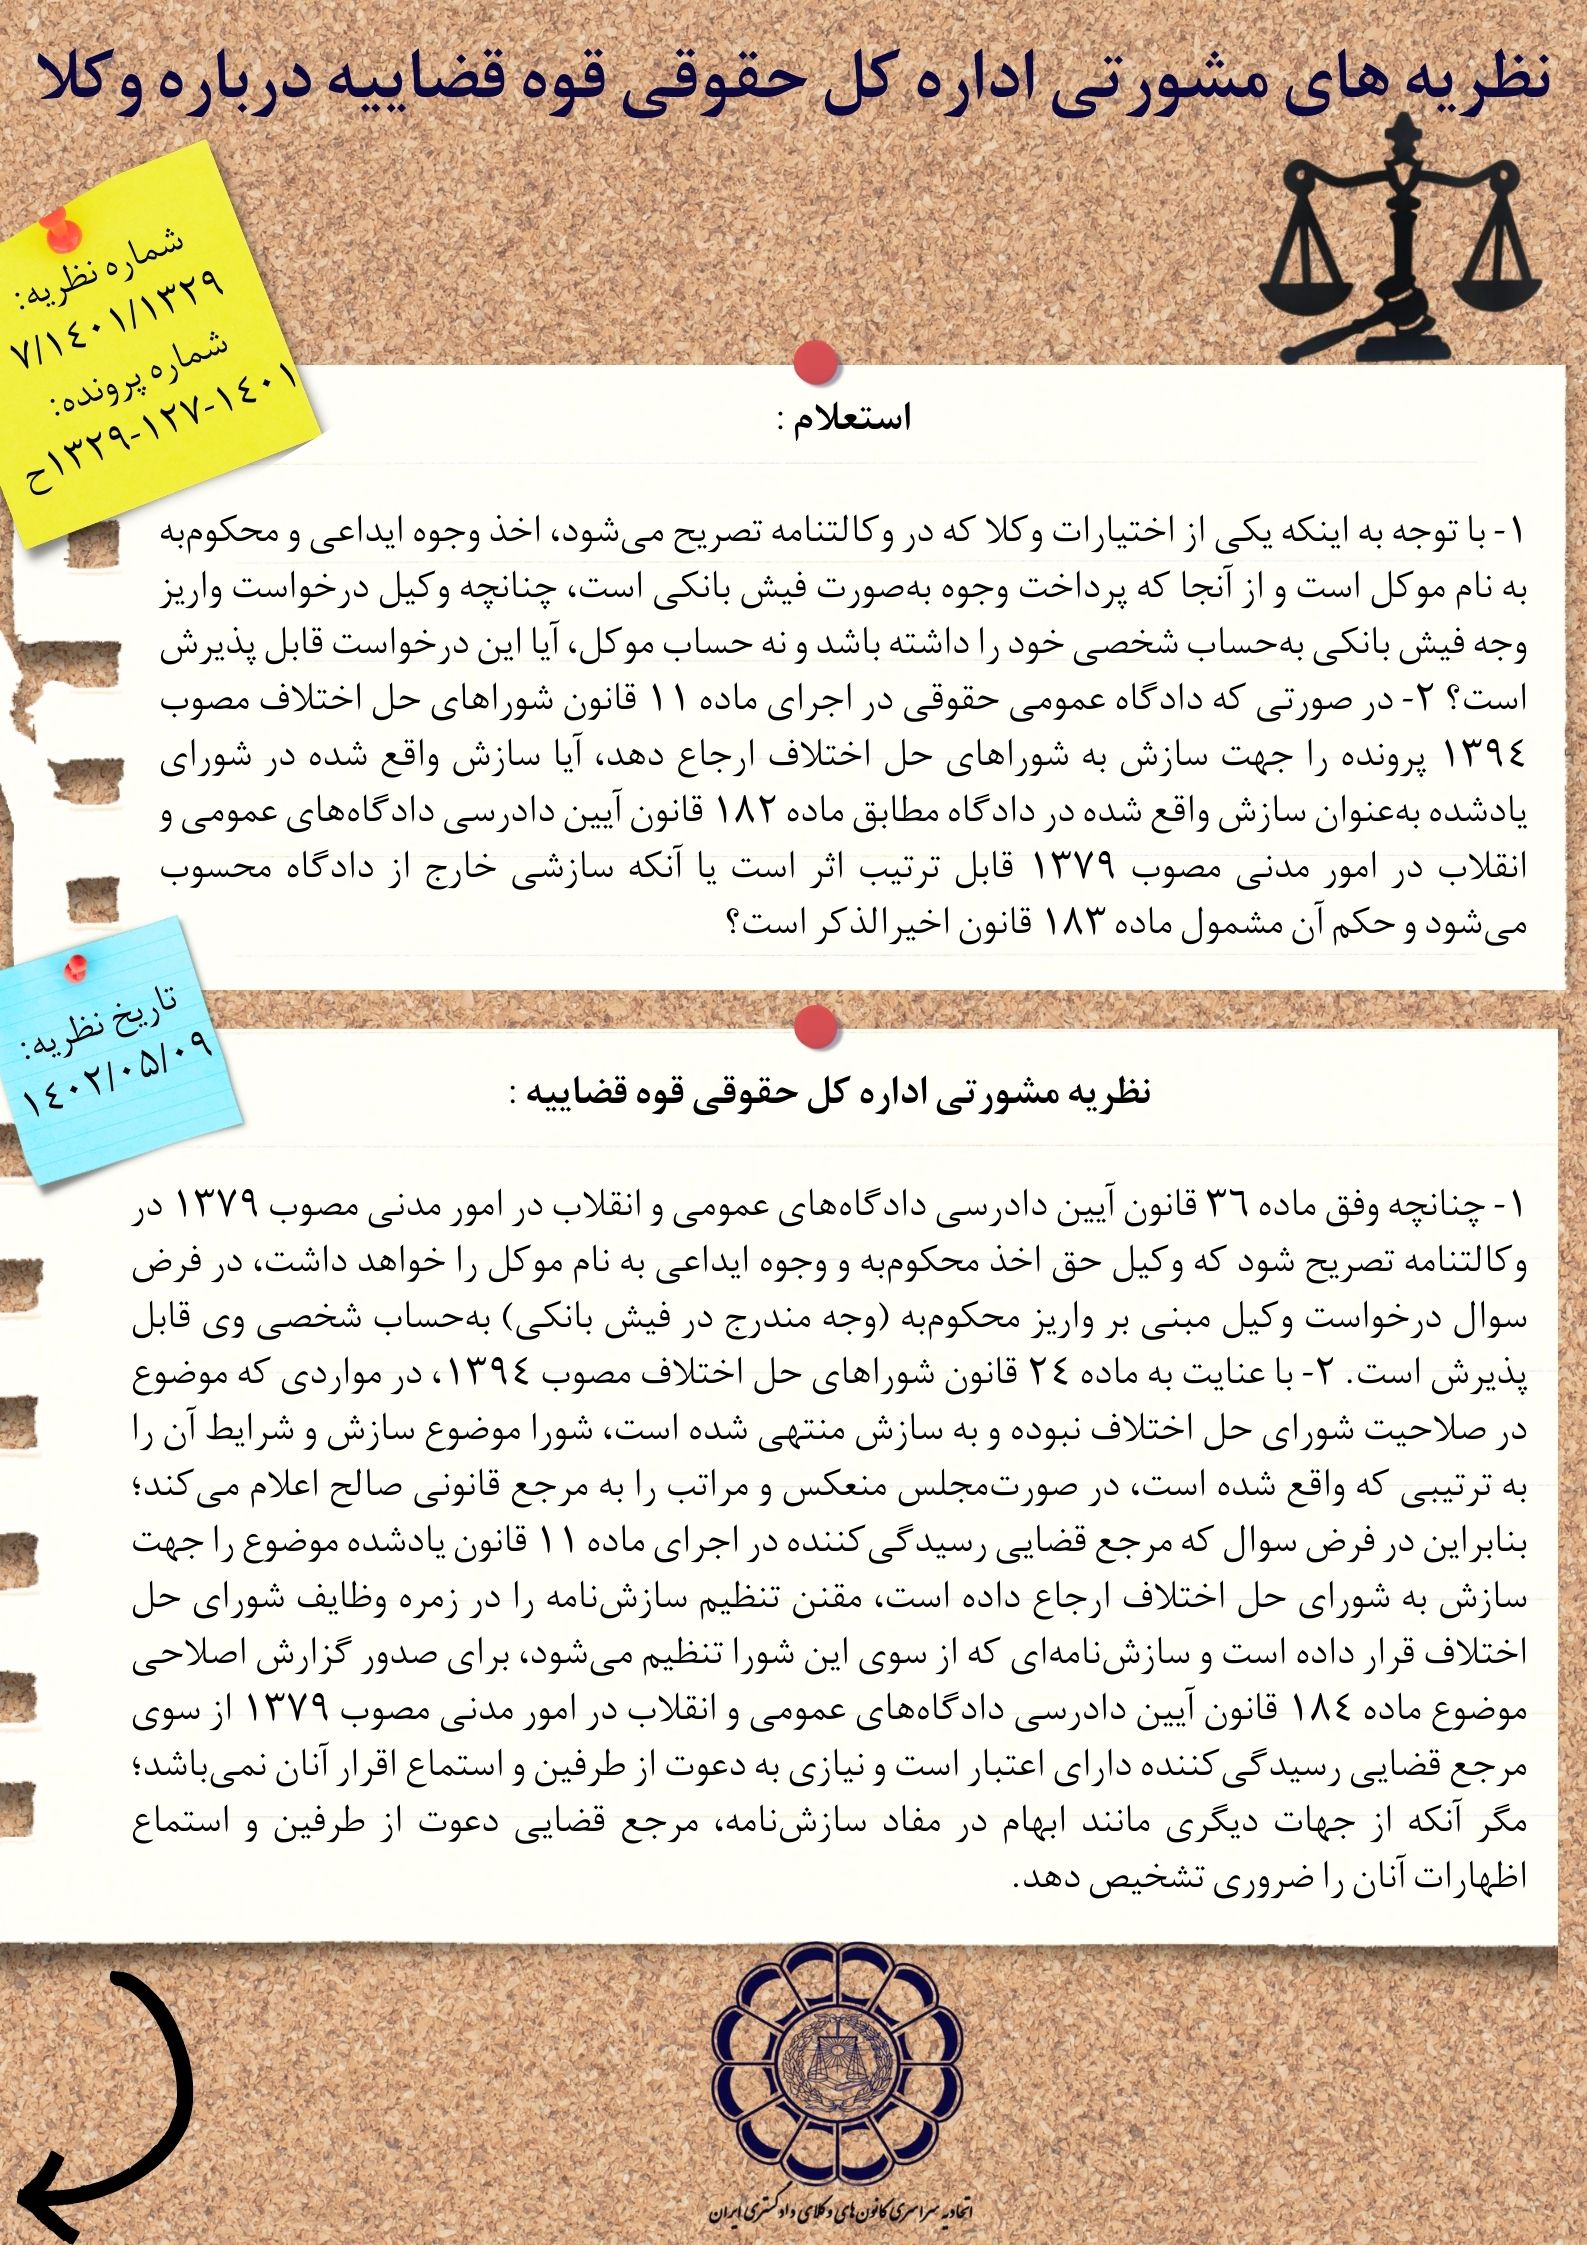 نظریه های مشورتی اداره کل حقوقی قوه قضاییه درباره وکلا
شماره نظریه:
۷/۱٤۰۱/۱۳۲۹
شماره پرونده:
۱٤۰۱-۱۲۷-۱۳۲۹ح
استعلام :
۱- با توجه به اینکه یکی از اختیارات وکلا که در وکالتنامه تصریح می‌شود، اخذ وجوه ایداعی و محکوم‌به
به نام موکل است و از آنجا که پرداخت وجوه به‌صورت فیش بانکی است، چنانچه وکیل درخواست واریز
وجه فیش بانکی به‌حساب شخصی خود را داشته باشد و نه حساب موکل، آیا این درخواست قابل پذیرش
است؟ ۲- در صورتی که دادگاه عمومی حقوقی در اجرای ماده ۱۱ قانون شوراهای حل اختلاف مصوب
۱۳۹٤ پرونده را جهت سازش به شوراهای حل اختلاف ارجاع دهد، آیا سازش واقع شده در شورای
یادشده به‌عنوان سازش واقع شده در دادگاه مطابق ماده ۱۸۲ قانون آیین دادرسی دادگاه‌های عمومی و
انقلاب در امور مدنی مصوب ۱۳۷۹ قابل ترتیب اثر است یا آنکه سازشی خارج از دادگاه محسوب
می‌شود و حکم آن مشمول ماده ۱۸۳ قانون اخیرالذکر است؟
تاریخ نظریه:
۱٤۰۲/۰۵/۰۹
نظریه مشورتی اداره کل حقوقی قوه قضاییه :
۱- چنانچه وفق ماده ۳٦ قانون آیین دادرسی دادگاه‌های عمومی و انقلاب در امور مدنی مصوب ۱۳۷۹ در
وکالتنامه تصریح شود که وکیل حق اخذ محکوم‌به و وجوه ایداعی به نام موکل را خواهد داشت، در فرض
سوال درخواست وکیل مبنی بر واریز محکوم‌به (وجه مندرج در فیش بانکی) به‌حساب شخصی وی قابل
پذیرش است. ۲- با عنایت به ماده ۲٤ قانون شوراهای حل اختلاف مصوب ۱۳۹٤، در مواردی که موضوع
در صلاحیت شورای حل اختلاف نبوده و به سازش منتهی شده است، شورا موضوع سازش و شرایط آن را
به ترتیبی که واقع شده است، در صورت‌مجلس منعکس و مراتب را به مرجع قانونی صالح اعلام می‌کند؛
بنابراین در فرض سوال که مرجع قضایی رسیدگی‌کننده در اجرای ماده ۱۱ قانون یادشده موضوع را جهت
سازش به شورای حل اختلاف ارجاع داده است، مقنن تنظیم سازش‌نامه را در زمره وظایف شورای حل
اختلاف قرار داده است و سازش‌نامه‌ای که از سوی این شورا تنظیم می‌شود، برای صدور گزارش اصلاحی
موضوع ماده ۱۸٤ قانون آیین دادرسی دادگاه‌های عمومی و انقلاب در امور مدنی مصوب ۱۳۷۹ از سوی
مرجع قضایی رسیدگی‌کننده دارای اعتبار است و نیازی به دعوت از طرفین و استماع اقرار آنان نمی‌باشد؛
مگر آنکه از جهات دیگری مانند ابهام در مفاد سازش‌نامه، مرجع قضایی دعوت از طرفین و استماع
اظهارات آنان را ضروری تشخیص دهد.
اتحادیه سراسری کانون های وکلای دادگستری ایران